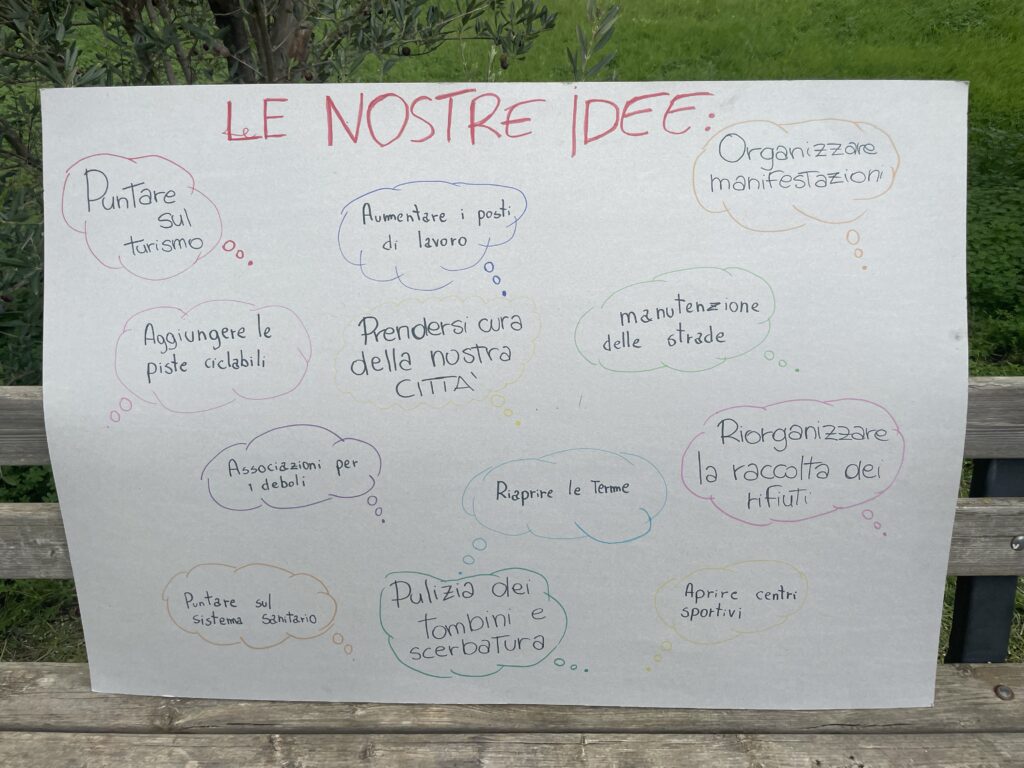 LE NOSTRE IDEE:
Puntare
sul
turismo
Aumentare i posti
di lavoro
Organizzare
manifestazioni
Aggiungere le
piste ciclabili
Prendersi cura
della nostra
CITTA'
manutenzione
delle strade
Associazioni per
i deboli
Riaprire le Terme
Riorganizzare
la raccolta dei
rifiuti
Puntare sul
sistema sanitario
Pulizia dei
tombini e
scerbatura
Aprire centri
sportivi